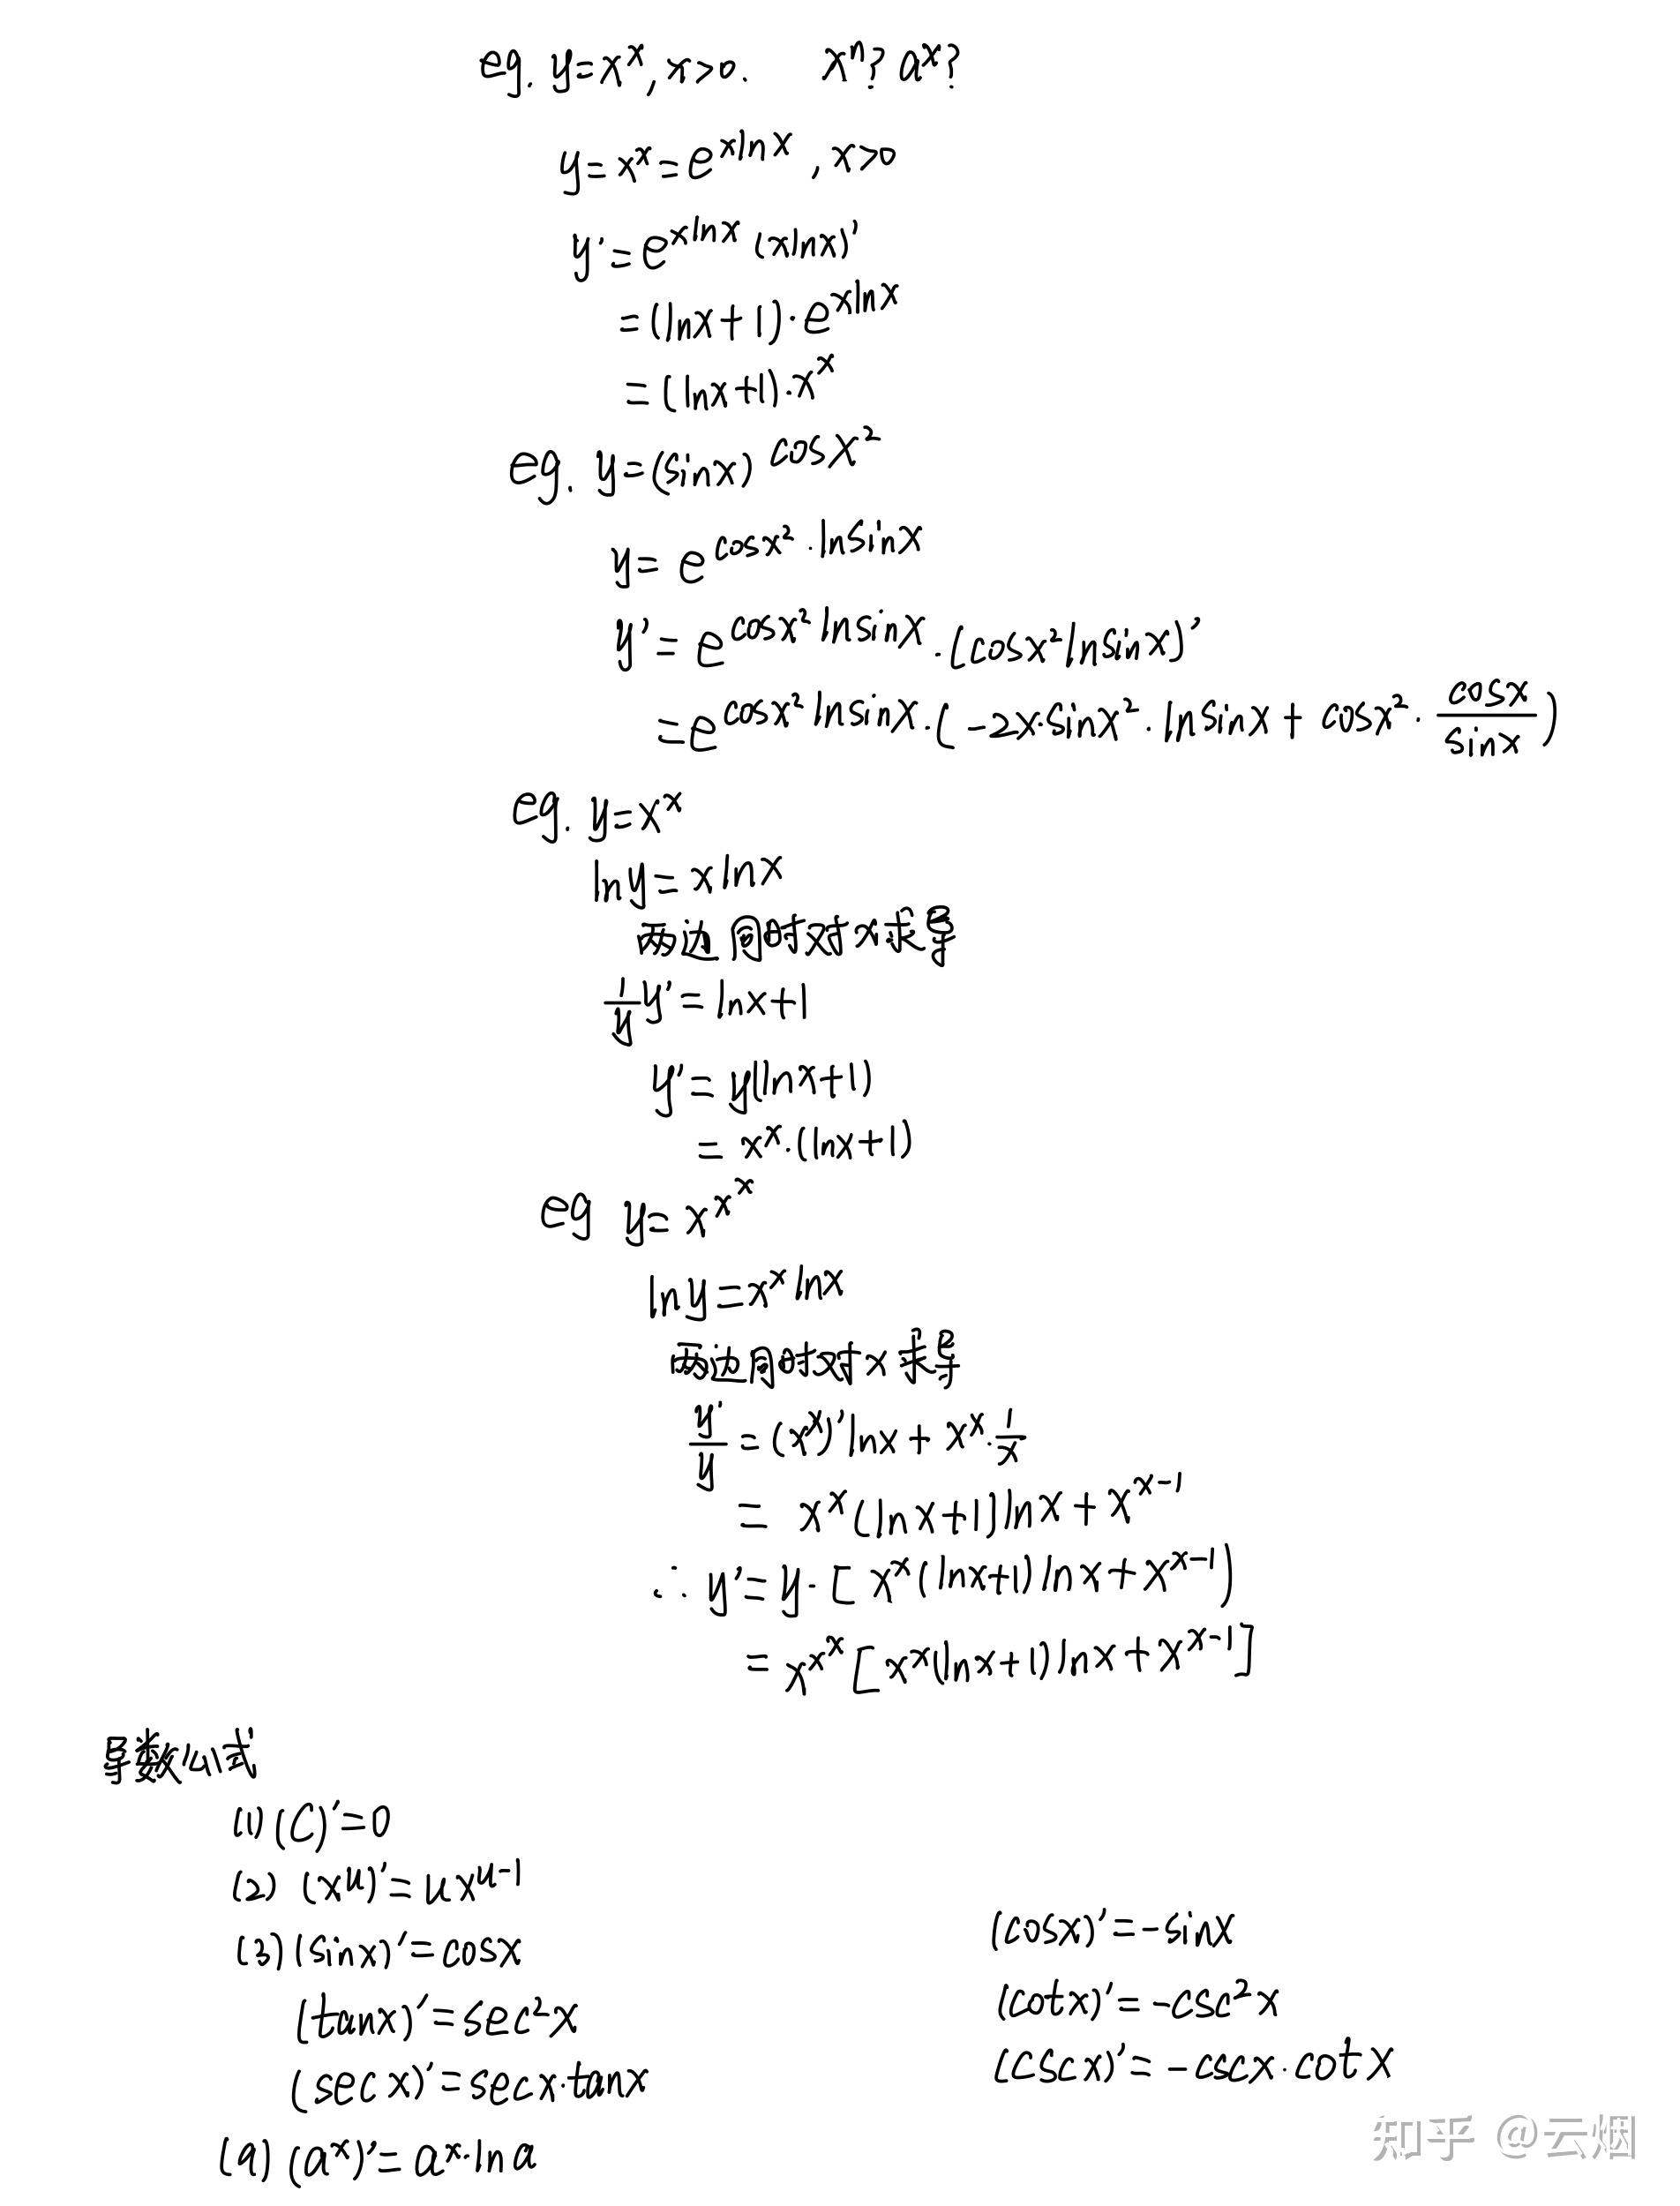 eg. y=x^x, x>0. x^n? a^x?
y=x^x=e^{xlnx}, x>0
y'=e^{xlnx}(xlnx)'
=(lnx+1)·e^{xlnx}
=(lnx+1)·x^x
eg. y=(sinx)^{cosx²}
y=e^{cosx²·lnsinx}
y'=e^{cosx²lnsinx}·(cosx²lnsinx)'
=e^{cosx²lnsinx}·(-2x·sinx²·lnsinx+cosx²·\frac{cosx}{sinx})
eg. y=x^x
lny=xlnx
两边同时对x求导
\frac{1}{y}y'=lnx+1
y'=y(lnx+1)
=x^x·(lnx+1)
eg y=x^{x^x}
lny=x^xlnx
两边同时对x求导
\frac{y'}{y}=(x^x)'lnx+x^x·\frac{1}{x}
=x^x(lnx+1)lnx+x^{x-1}
∴y'=y·[x^x(lnx+1)lnx+x^{x-1})
=x^{x^x}[x^x(lnx+1)lnx+x^{x-1}]
导数公式
(1)(C)'=0
(2)(x^u)'=ux^{u-1}
(3)(sinx)'=cosx (cosx)'=-sinx
(tanx)'=sec²x (cotx)'=-csc²x
(secx)'=secx·tanx (cscx)'=-cscx·cotx
(4)(a^x)'=a^x·lna
知乎 @云烟